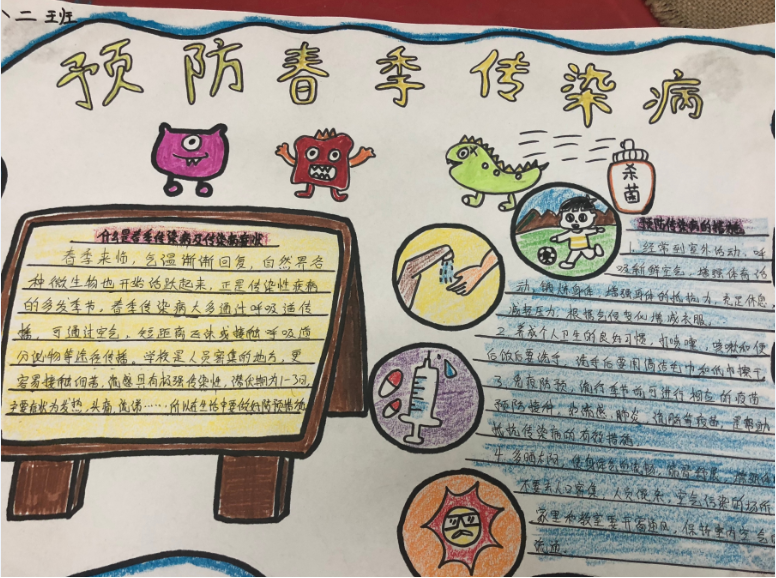 二班
预防春季传染病
杀菌
什么是春季传染病及传染病症状
春季来临，气温渐渐回复，自然界各
种微生物也开始活跃起来，正是传染性疾病
的多发季节，春季传染病大多通过呼吸道传
播，可通过空气，短距离飞沫或接触呼吸道
分泌物等途径传播。学校是人员密集的地方，更
容易接触细菌，流感具有极强传染性，潜伏期为1-3日，
主要症状为发热，头痛，流涕……所以在生活中要做好防预措施
预防传染病的措施
1. 经常到室外活动，呼
吸新鲜空气，增强体育活
动，锻炼身体，增强身体的抵抗力，充足休息
减轻压力，根据气候变化增减衣服...
2. 养成个人卫生的良好习惯，打喷嚏，咳嗽和便
后饭后要洗手，洗手后要用清洁毛巾和纸巾擦干
3. 免疫防预，流行季节前可进行相应的疫苗
预防接种，如流感、肺炎、
抵抗传染病的有效措施
4. 多晒太阳，
不要去人口密集，人员
家里和教室要开窗通风，保持室内空气
流通。